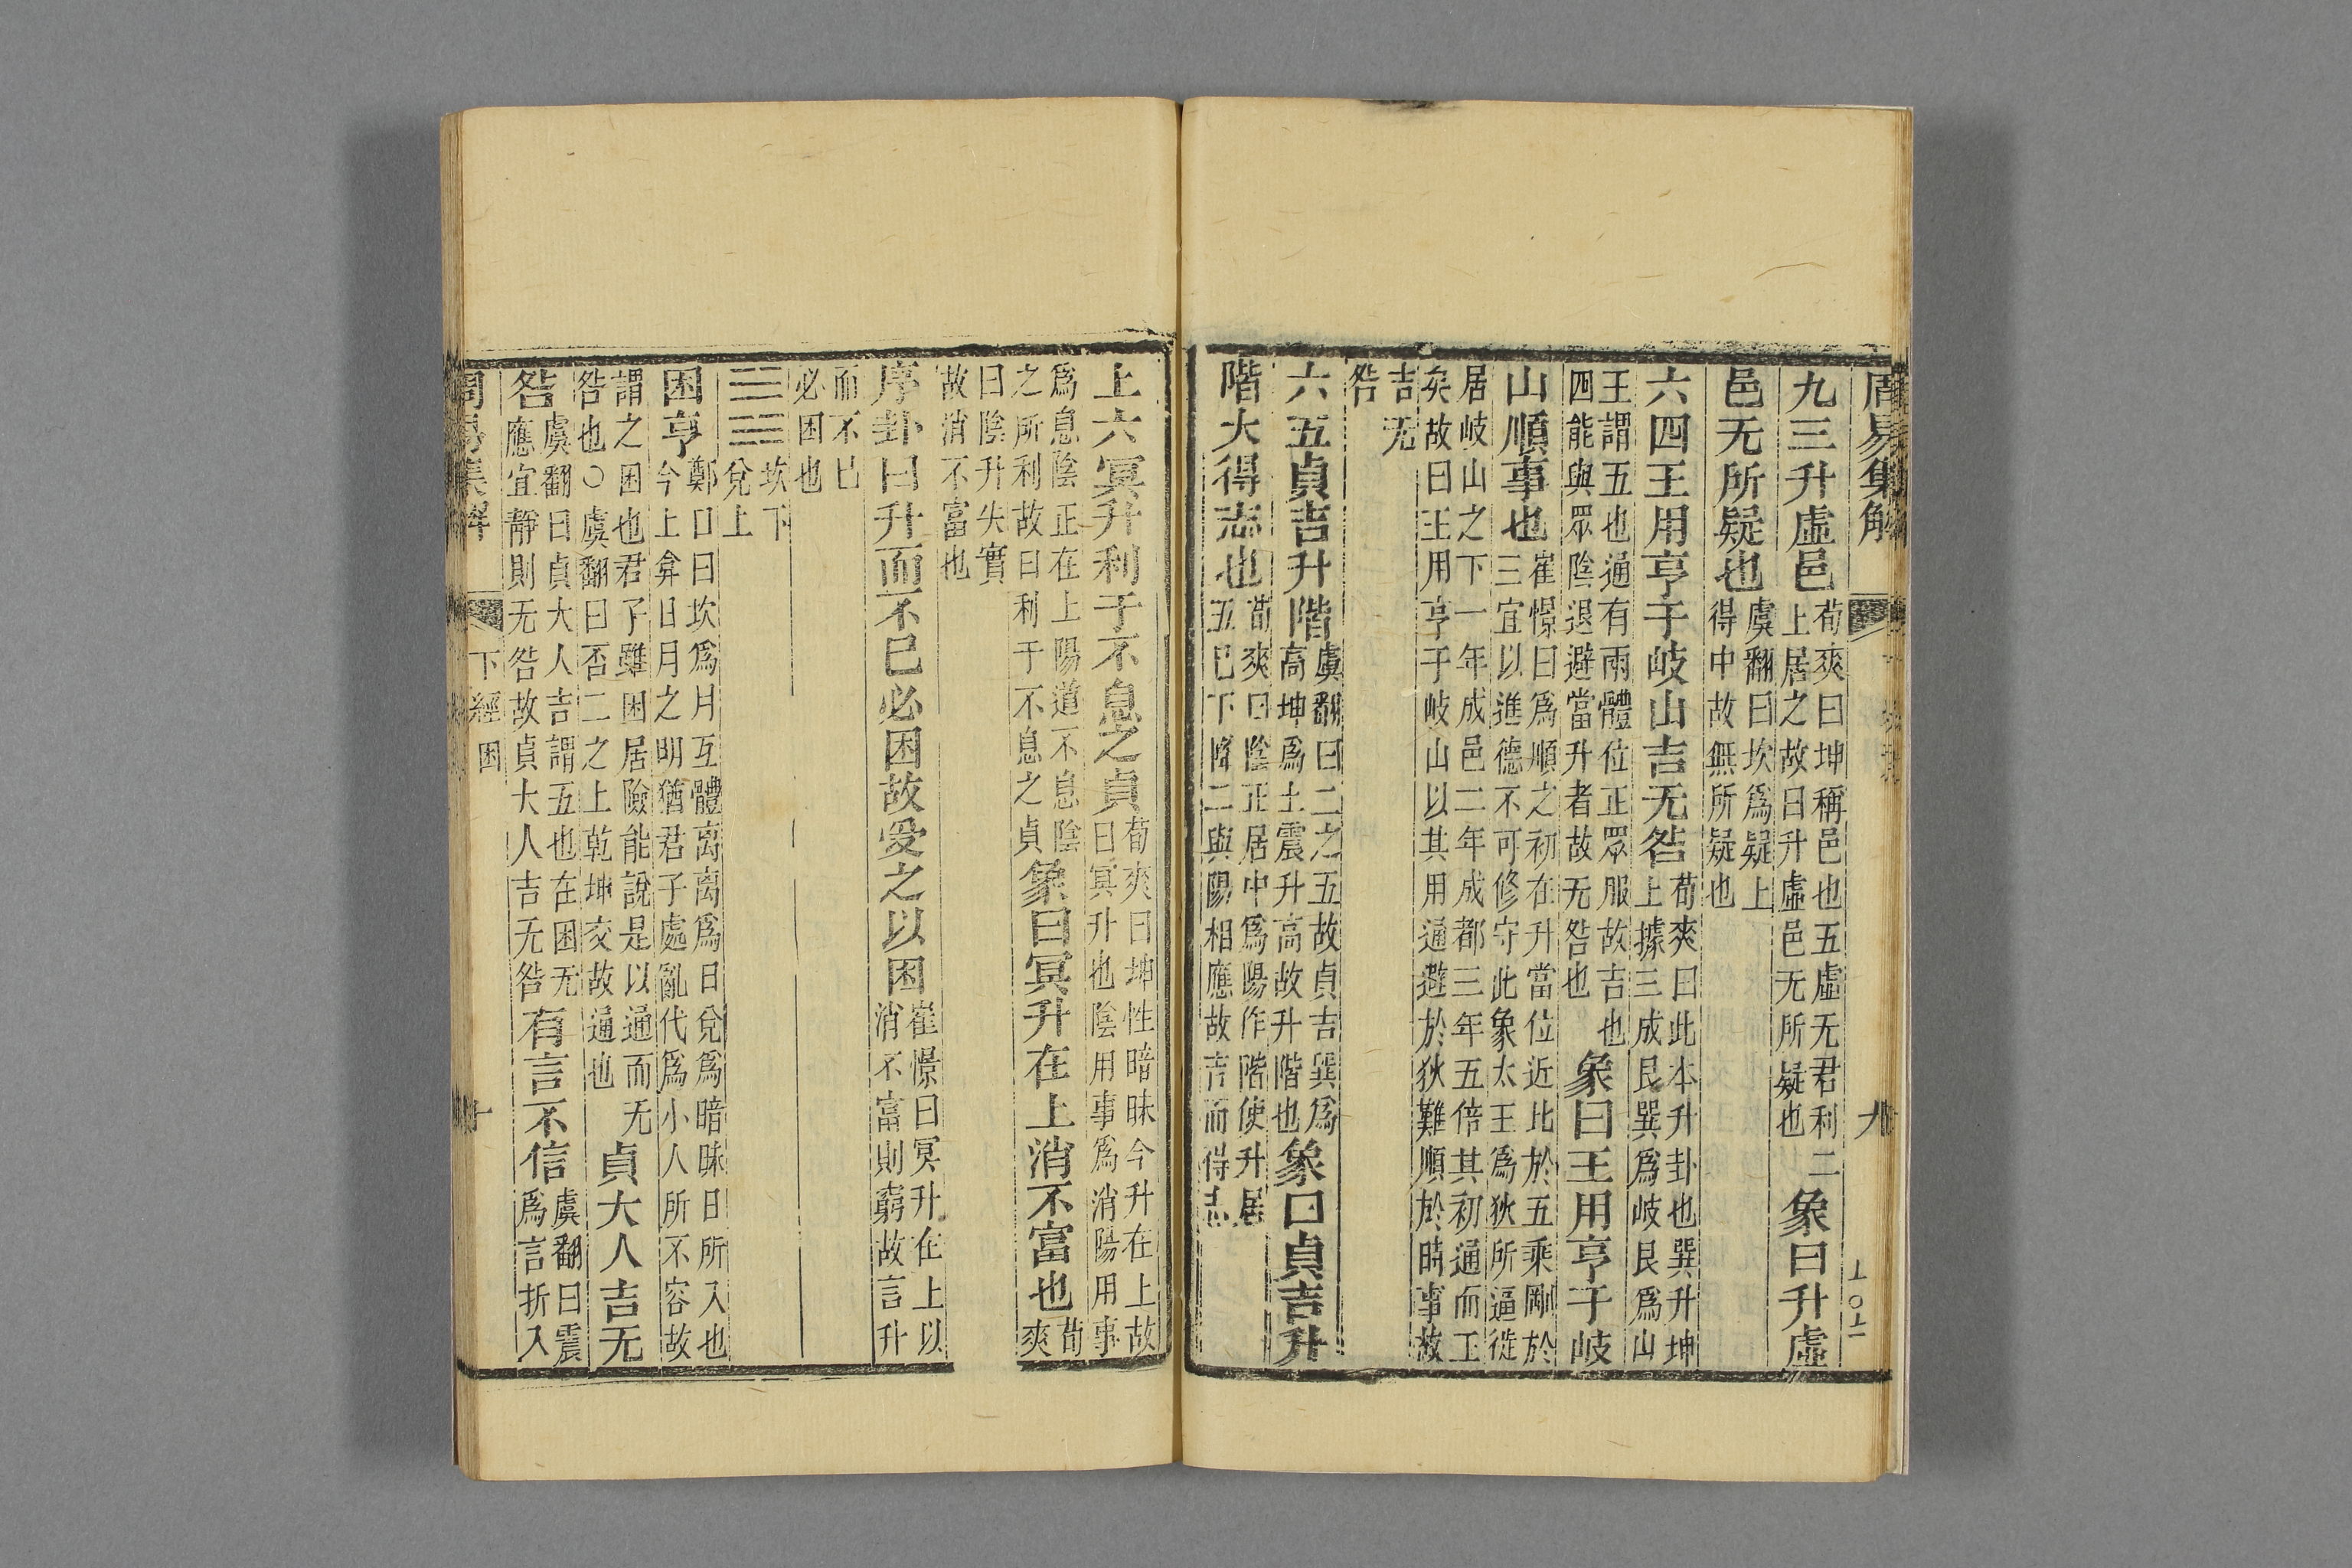 周易集解
九
九三升虛邑荀爽曰坤稱邑也五虛无君利二上居之故曰升虛邑无所疑也象曰升虛
邑无所疑也虞翻曰坎爲疑上得中故無所疑也
六四王用亨于岐山吉无咎荀爽曰此本升卦也巽升坤上據三成艮巽爲岐艮爲山
王謂五也通有兩體位正眾服故吉也四能與眾陰退避當升者故无咎也象曰王用亨于岐
山順事也崔憬曰爲順之初在升當位近比於五乘剛於三宜以進德不可修守此象太王爲狄所逼徙
居岐山之下一年成邑二年成都三年五倍其初通而王矣故曰王用亨于岐山以其用通避於狄難順於時事故
吉无咎
六五貞吉升階虞翻曰二之五故貞吉巽爲高坤爲土震升高故升階也象曰貞吉升
階大得志也荀爽曰陰正居中爲陽作階使升居五已下降二與陽相應故吉而得志
上六冥升利于不息之貞荀爽曰坤性暗昧今升在上故曰冥升也陰用事爲消陽用事
爲息陰正在上陽道不息陰之所利故曰利于不息之貞象曰冥升在上消不富也荀爽
曰陰升失實故消不富也
序卦曰升而不已必困故受之以困崔憬曰冥升在上以消不富則窮故言升
而不已必困也
坎下兌上
困亨鄭曰坎爲月互體离离爲日兌爲暗昧日所入也今上弇日月之明猶君子處亂代爲小人所不容故
謂之困也君子雖困居險能說是以通而无咎也○虞翻曰否二之上乾坤交故通也貞大人吉无
咎虞翻曰貞大人吉謂五也在困无應宜靜則无咎故貞大人吉无咎有言不信虞翻曰震爲言折入
周易集解
下經 困
十